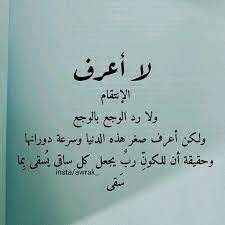 لا أعرف
الإنتقام
ولا رد الوجع بالوجع
ولكن أعرف صغر هذه الدنيا وسرعة دورانها
وحقيقة أن للكونِّ ربٌّ يجعل كل ساقي يُسقى بِما
سَقى
insta/awrak_